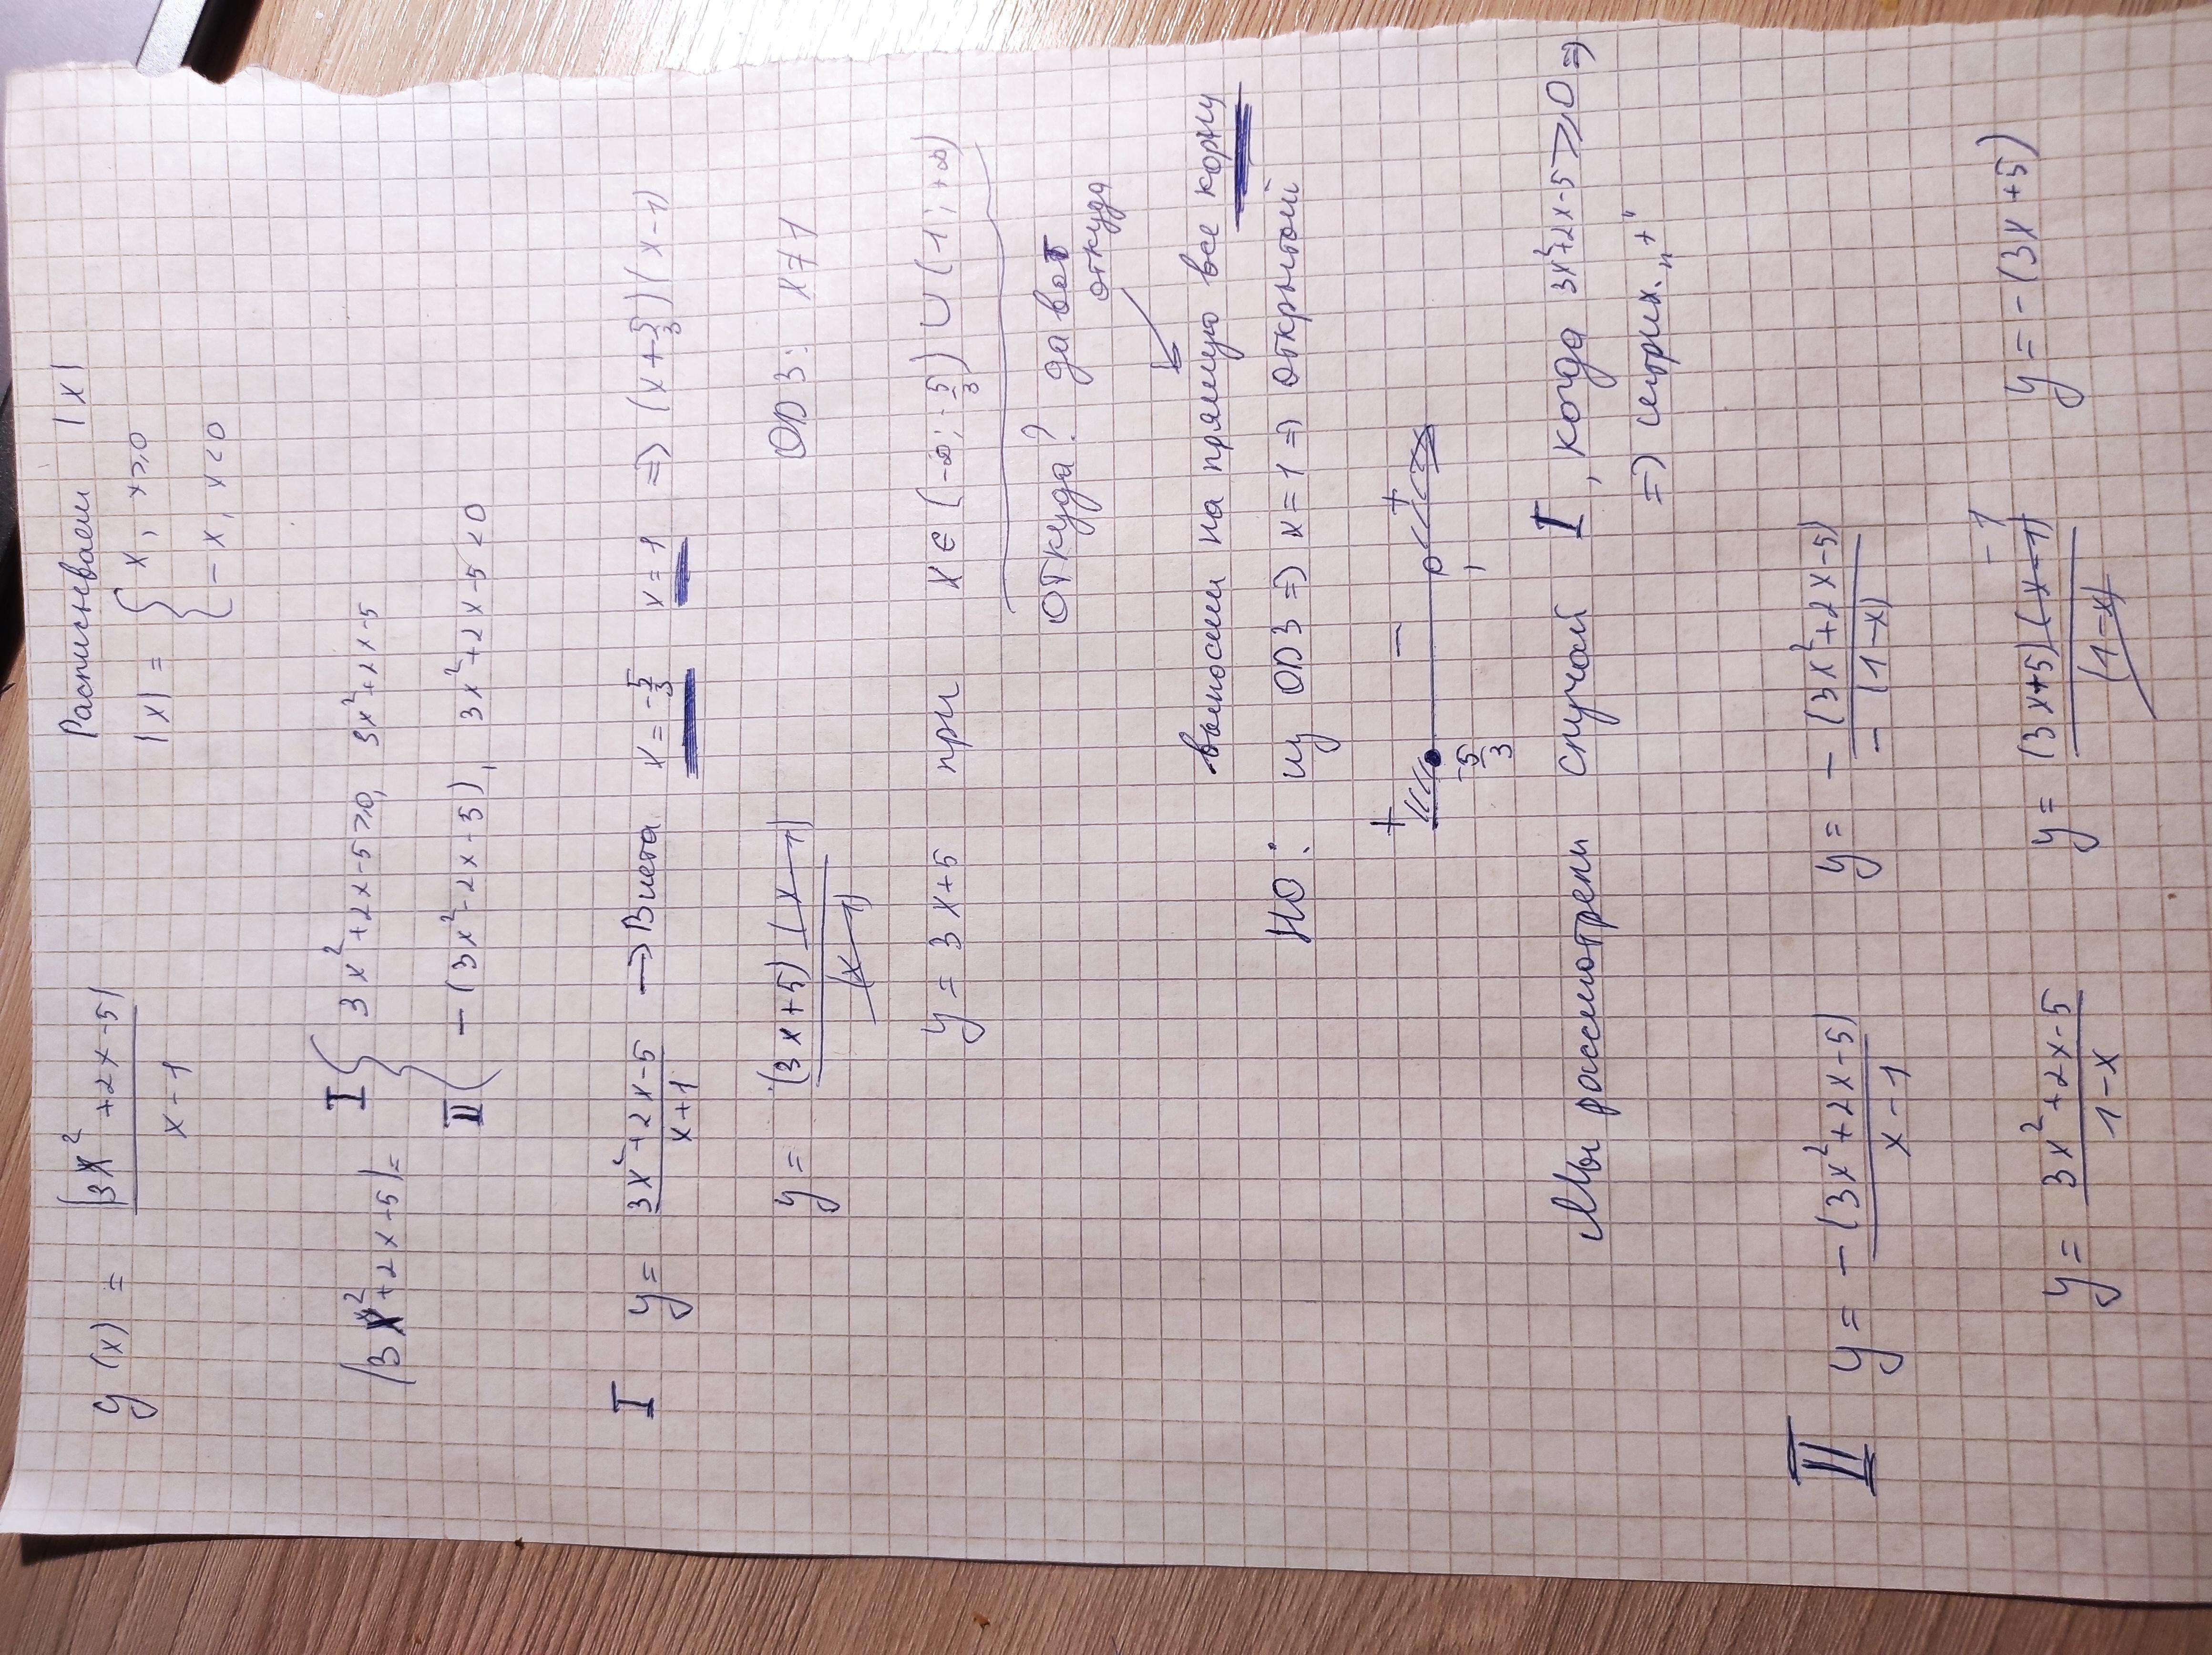 y(x) = |3x² + 2x - 5| / x - 1    Расписываем |x|
|x| = { x, x ≥ 0
{ - x, x < 0
|3x² + 2x - 5| = I { 3x² + 2x - 5 ≥ 0, 3x² + 2x - 5
II { - (3x² - 2x - 5), 3x² + 2x - 5 < 0
I y = 3x² + 2x - 5 / x + 1 → Виета x = -5/3 x = 1 ⇒ (x + 5/3)(x - 1)
y = (3x + 5)(x - 1) / (x - 1)    ОДЗ: x ≠ 1
y = 3x + 5 при x ∈ (-∞; -5/3) ∪ (1; +∞)
откуда? да вот откуда
выносим на прямую все корни
НО: из ОДЗ ⇒ x = 1 ⇒ открытой
+ - +
-5/3 1
Мы рассмотрели случай I, когда 3x² + 2x - 5 ≥ 0 ⇒
⇒ штрих. "+"
II y = - (3x² + 2x - 5) / x - 1    y = - (3x² + 2x - 5) / - (1 - x)
y = 3x² + 2x - 5 / 1 - x    y = (3x + 5)(x - 1) / (1 - x) - 1    y = - (3x + 5)